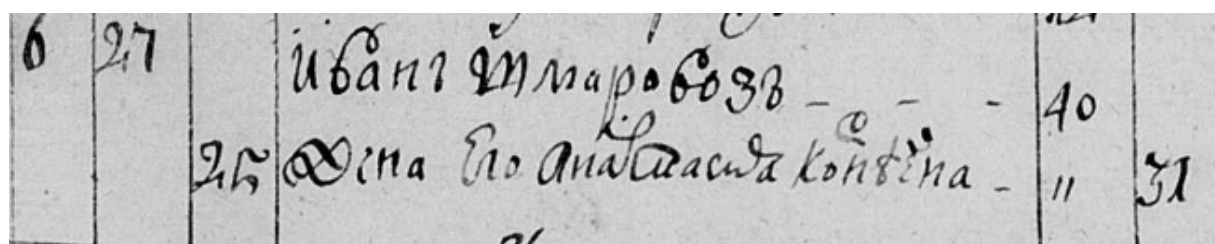 6 27 Иванъ Шмаровозъ - - - 40
25 Жена Его Анастасиѧ - " 31